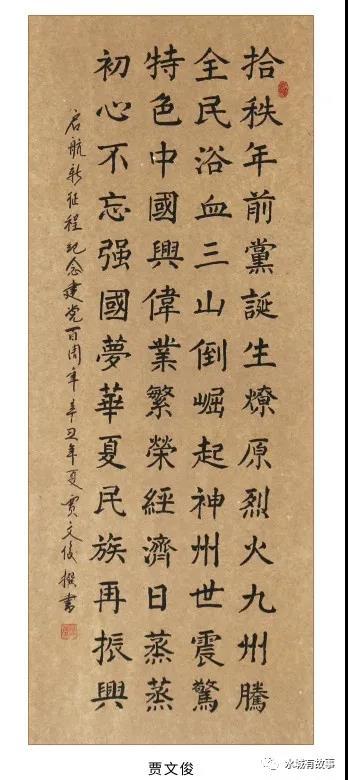 拾秩年前黨誕生燎原烈火九州騰
全民浴血三山倒崛起神州世震驚
特色中國興偉業繁榮經濟日蒸蒸
初心不忘强國夢華夏民族再振興
启航新征程纪念建党百周年辛丑年夏贾文俊撰書
贾文俊
水城有故事